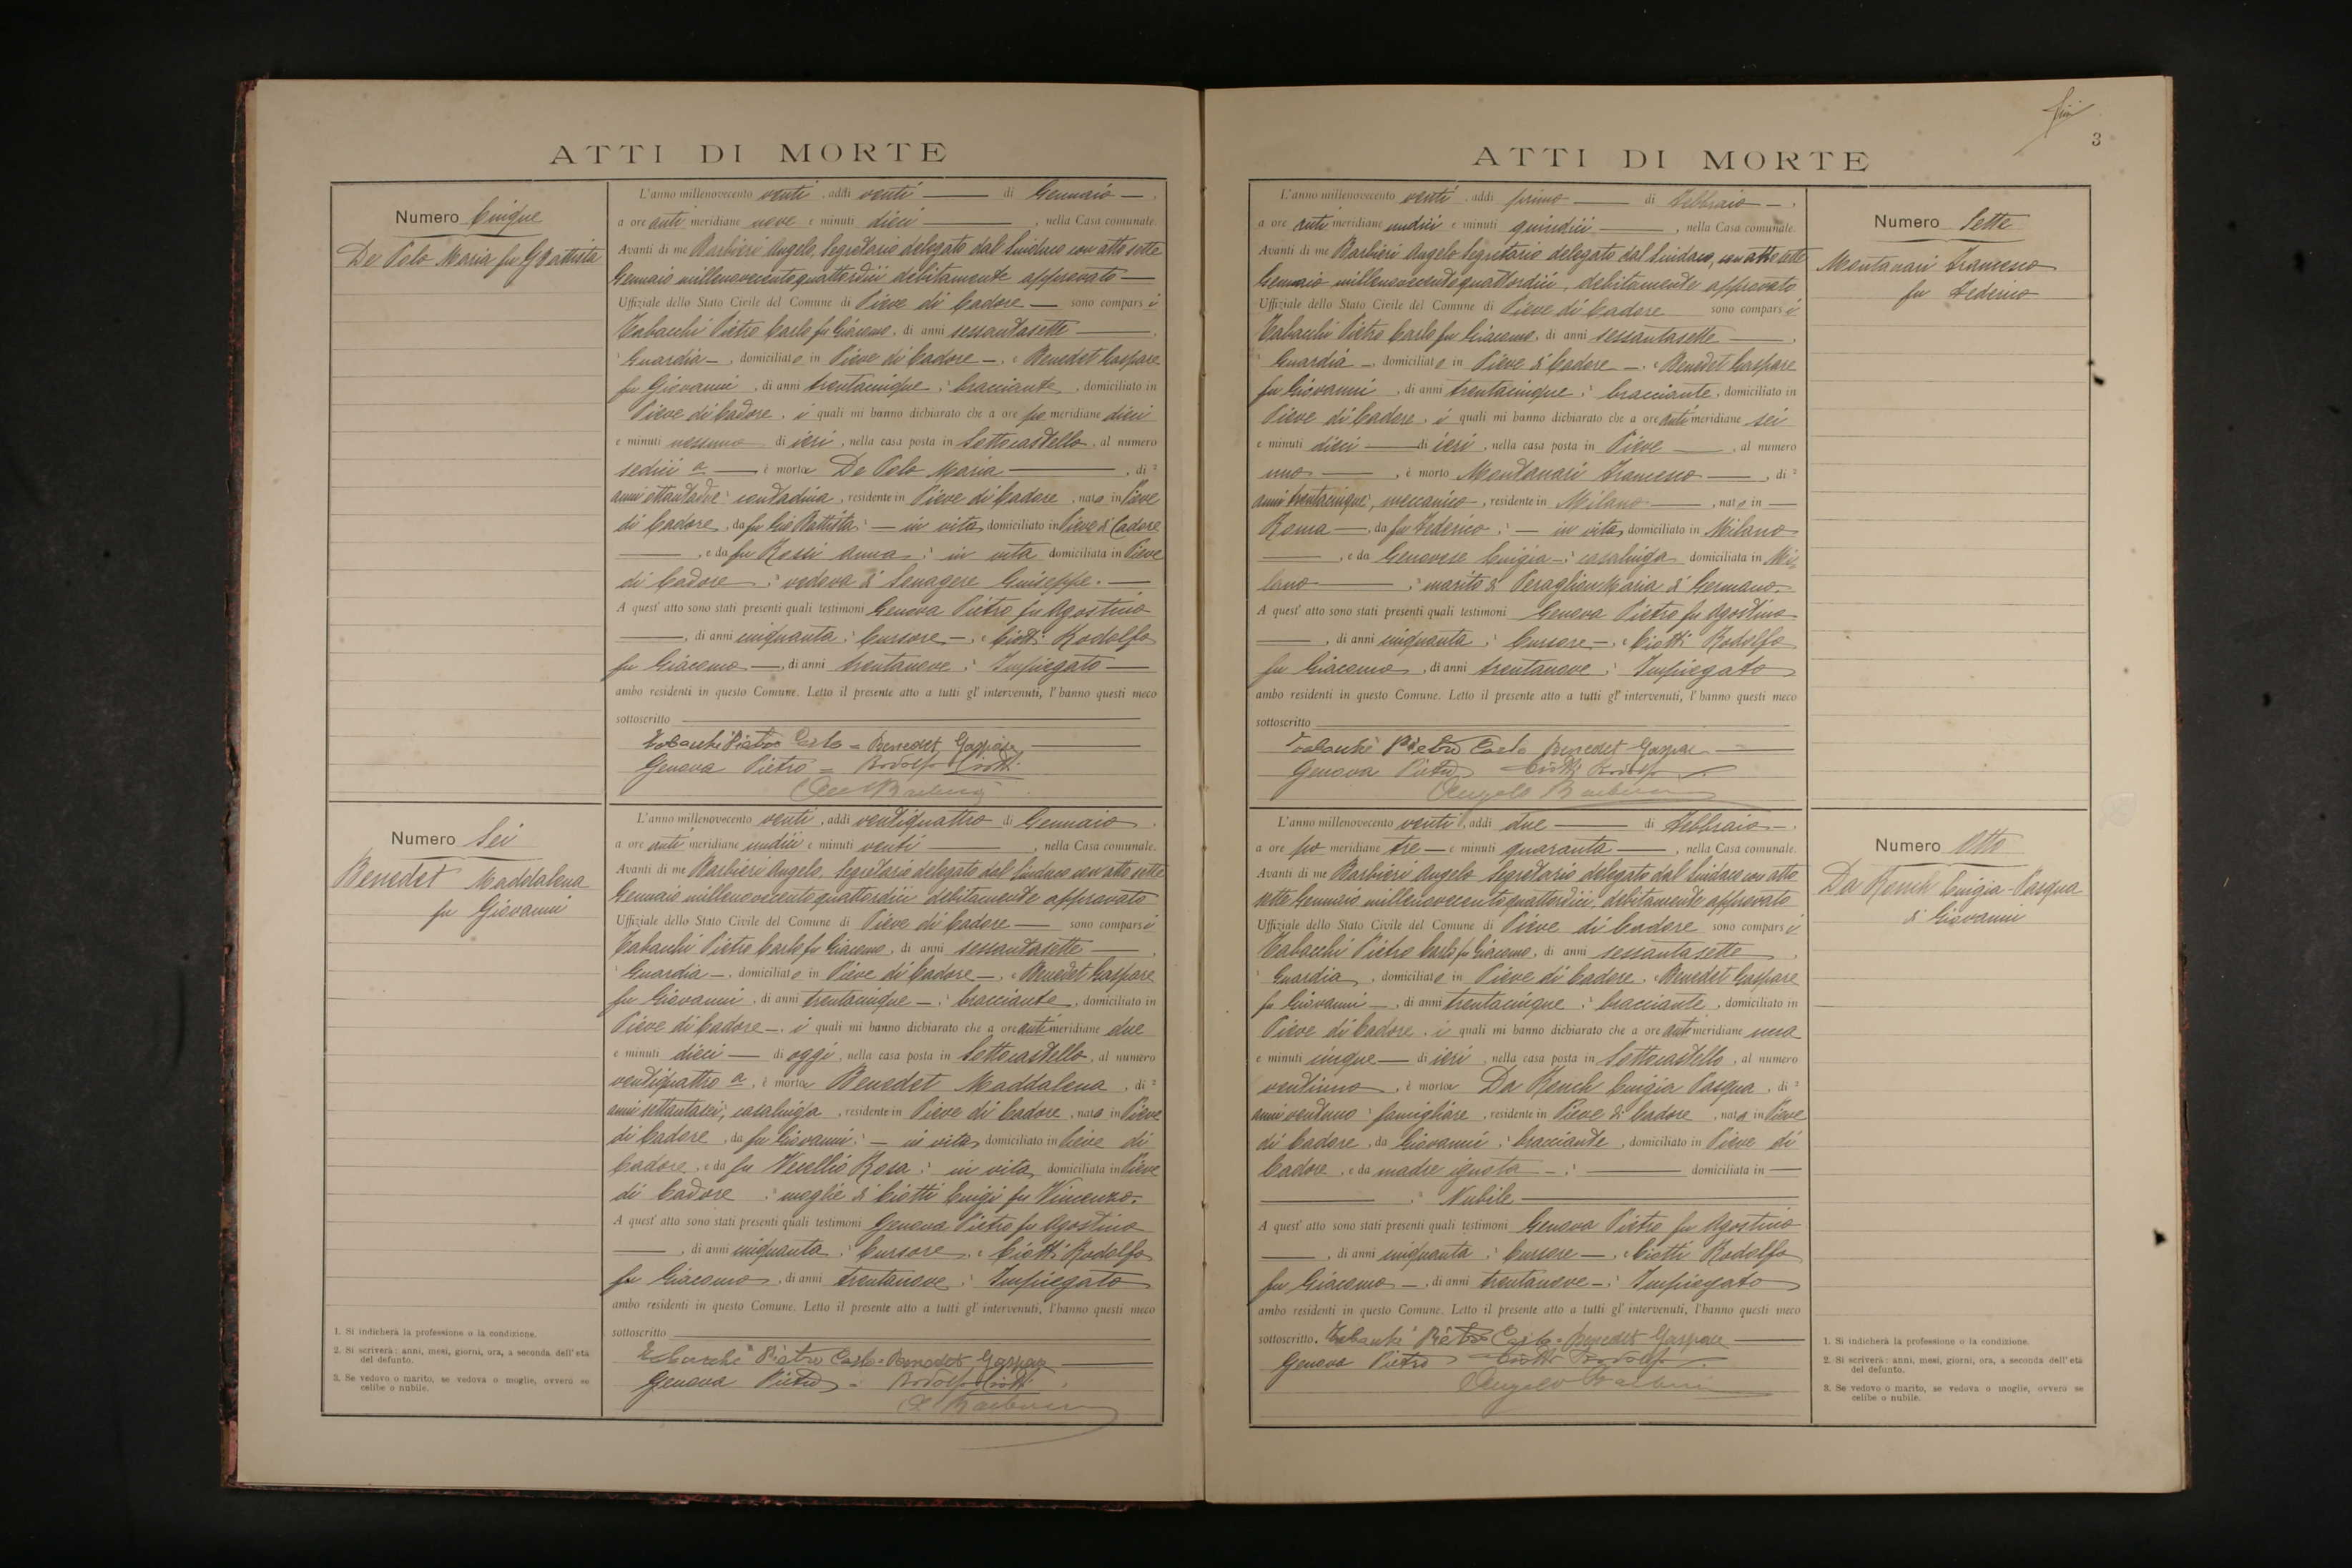 ATTI DI MORTE
Numero Cinque
De Polo Maria fu G Battista
L'anno millenovecento venti, addì venti — di Gennaio —,
a ore anti meridiane nove e minuti dieci —, nella Casa comunale.
Avanti di me Barbieri Angelo, Segretario delegato dal Sindaco con atto sette
Gennaio millenovecentoquattordici debitamente approvato —
Uffiziale dello Stato Civile del Comune di Pieve di Cadore — sono comparsi
Tabacchi Pietro Carlo fu Giacomo, di anni sessantasette —,
Guardia —, domiciliato in Pieve di Cadore —, e Benedet Gaspare
fu Giovanni, di anni trentacinque, bracciante, domiciliato in
Pieve di Cadore, i quali mi hanno dichiarato che a ore po meridiane dieci
e minuti nessuno di ieri, nella casa posta in Sottocastello, al numero
sedici a —, è morta De Polo Maria —, di
anni ottantadue, contadina, residente in Pieve di Cadore, nata in Pieve
di Cadore, da fu Gio Battista, — in vita domiciliato in Pieve di Cadore
—, e da fu Rossi Anna, in vita domiciliata in Pieve
di Cadore, vedova di Giuseppe. —
A quest'atto sono stati presenti quali testimoni Genova Pietro fu Agostino
—, di anni cinquanta, Cursore —, e Ciotti Rodolfo
fu Giacomo —, di anni trentanove, Impiegato —
ambo residenti in questo Comune. Letto il presente atto a tutti gl'intervenuti, l'hanno questi meco
sottoscritto
Tabacchi Pietro Carlo = Benedet Gaspare —
Genova Pietro = Rodolfo Ciotti
A Barbieri
Numero Sei
Benedet Maddalena
fu Giovanni
L'anno millenovecento venti, addì ventiquattro di Gennaio,
a ore anti meridiane undici e minuti venti —, nella Casa comunale.
Avanti di me Barbieri Angelo, Segretario delegato dal Sindaco con atto sette
Gennaio millenovecentoquattordici debitamente approvato
Uffiziale dello Stato Civile del Comune di Pieve di Cadore — sono comparsi
Tabacchi Pietro Carlo fu Giacomo, di anni sessantasette —,
Guardia —, domiciliato in Pieve di Cadore —, e Benedet Gaspare
fu Giovanni, di anni trentacinque —, bracciante, domiciliato in
Pieve di Cadore —, i quali mi hanno dichiarato che a ore anti meridiane due
e minuti dieci — di oggi, nella casa posta in Sottocastello, al numero
ventiquattro a, è morta Benedet Maddalena, di
anni settantasei, casalinga, residente in Pieve di Cadore, nata in Pieve
di Cadore, da fu Giovanni, — in vita domiciliato in Pieve di
Cadore, e da fu Vecellio Rosa, in vita domiciliata in Pieve
di Cadore, moglie di Ciotti Luigi fu Vincenzo.
A quest'atto sono stati presenti quali testimoni Genova Pietro fu Agostino
—, di anni cinquanta, Cursore, e Ciotti Rodolfo
fu Giacomo, di anni trentanove, Impiegato
ambo residenti in questo Comune. Letto il presente atto a tutti gl'intervenuti, l'hanno questi meco
sottoscritto
Tabacchi Pietro Carlo = Benedet Gaspare —
Genova Pietro = Rodolfo Ciotti
A Barbieri
1. Si indicherà la professione o la condizione.
2. Si scriverà: anni, mesi, giorni, ora, a seconda dell'età
del defunto.
3. Se vedovo o marito, se vedova o moglie, ovvero se
celibe o nubile.
3
ATTI DI MORTE
L'anno millenovecento venti, addì primo — di Febbraio —,
a ore anti meridiane undici e minuti quindici —, nella Casa comunale.
Avanti di me Barbieri Angelo Segretario delegato dal Sindaco, con atto sette
Gennaio millenovecentoquattordici, debitamente approvato
Uffiziale dello Stato Civile del Comune di Pieve di Cadore sono comparsi
Tabacchi Pietro Carlo fu Giacomo, di anni sessantasette —,
Guardia —, domiciliato in Pieve di Cadore —, e Benedet Gaspare
fu Giovanni, di anni trentacinque, bracciante, domiciliato in
Pieve di Cadore, i quali mi hanno dichiarato che a ore anti meridiane sei
e minuti dieci — di ieri, nella casa posta in Pieve —, al numero
uno —, è morto Montanari Francesco —, di
anni trentacinque, meccanico, residente in Milano —, nato in —
Roma —, da fu Federico, — in vita domiciliato in Milano
—, e da Genovese Luigia —, casalinga domiciliata in Mi-
lano —, marito di Peraglian Maria di Germano.
A quest'atto sono stati presenti quali testimoni Genova Pietro fu Agostino
—, di anni cinquanta, Cursore —, e Ciotti Rodolfo
fu Giacomo, di anni trentanove, Impiegato
ambo residenti in questo Comune. Letto il presente atto a tutti gl'intervenuti, l'hanno questi meco
sottoscritto
Tabacchi Pietro Carlo Benedet Gaspare —
Genova Pietro Ciotti Rodolfo
Angelo Barbieri
Numero Sette
Montanari Francesco
fu Federico
L'anno millenovecento venti, addì due — di Febbraio —,
a ore po meridiane tre — e minuti quaranta —, nella Casa comunale.
Avanti di me Barbieri Angelo Segretario delegato dal Sindaco con atto
sette Gennaio millenovecentoquattordici, debitamente approvato
Uffiziale dello Stato Civile del Comune di Pieve di Cadore sono comparsi
Tabacchi Pietro Carlo fu Giacomo, di anni sessantasette,
Guardia, domiciliato in Pieve di Cadore, e Benedet Gaspare
fu Giovanni —, di anni trentacinque, bracciante, domiciliato in
Pieve di Cadore, i quali mi hanno dichiarato che a ore anti meridiane una
e minuti cinque — di ieri, nella casa posta in Sottocastello, al numero
ventiuno, è morta Da Rench Luigia Pasqua, di
anni ventuno, famigliare, residente in Pieve di Cadore, nata in Pieve
di Cadore, da Giovanni, bracciante, domiciliato in Pieve di
Cadore, e da madre ignota —, — domiciliata in —
—, Nubile —
A quest'atto sono stati presenti quali testimoni Genova Pietro fu Agostino
—, di anni cinquanta, Cursore —, e Ciotti Rodolfo
fu Giacomo —, di anni trentanove —, Impiegato
ambo residenti in questo Comune. Letto il presente atto a tutti gl'intervenuti, l'hanno questi meco
sottoscritto. Tabacchi Pietro Carlo = Benedet Gaspare —
Genova Pietro Ciotti Rodolfo
Angelo Barbieri
Numero Otto
Da Rench Luigia-Pasqua
di Giovanni
1. Si indicherà la professione o la condizione.
2. Si scriverà: anni, mesi, giorni, ora, a seconda dell'età
del defunto.
3. Se vedovo o marito, se vedova o moglie, ovvero se
celibe o nubile.